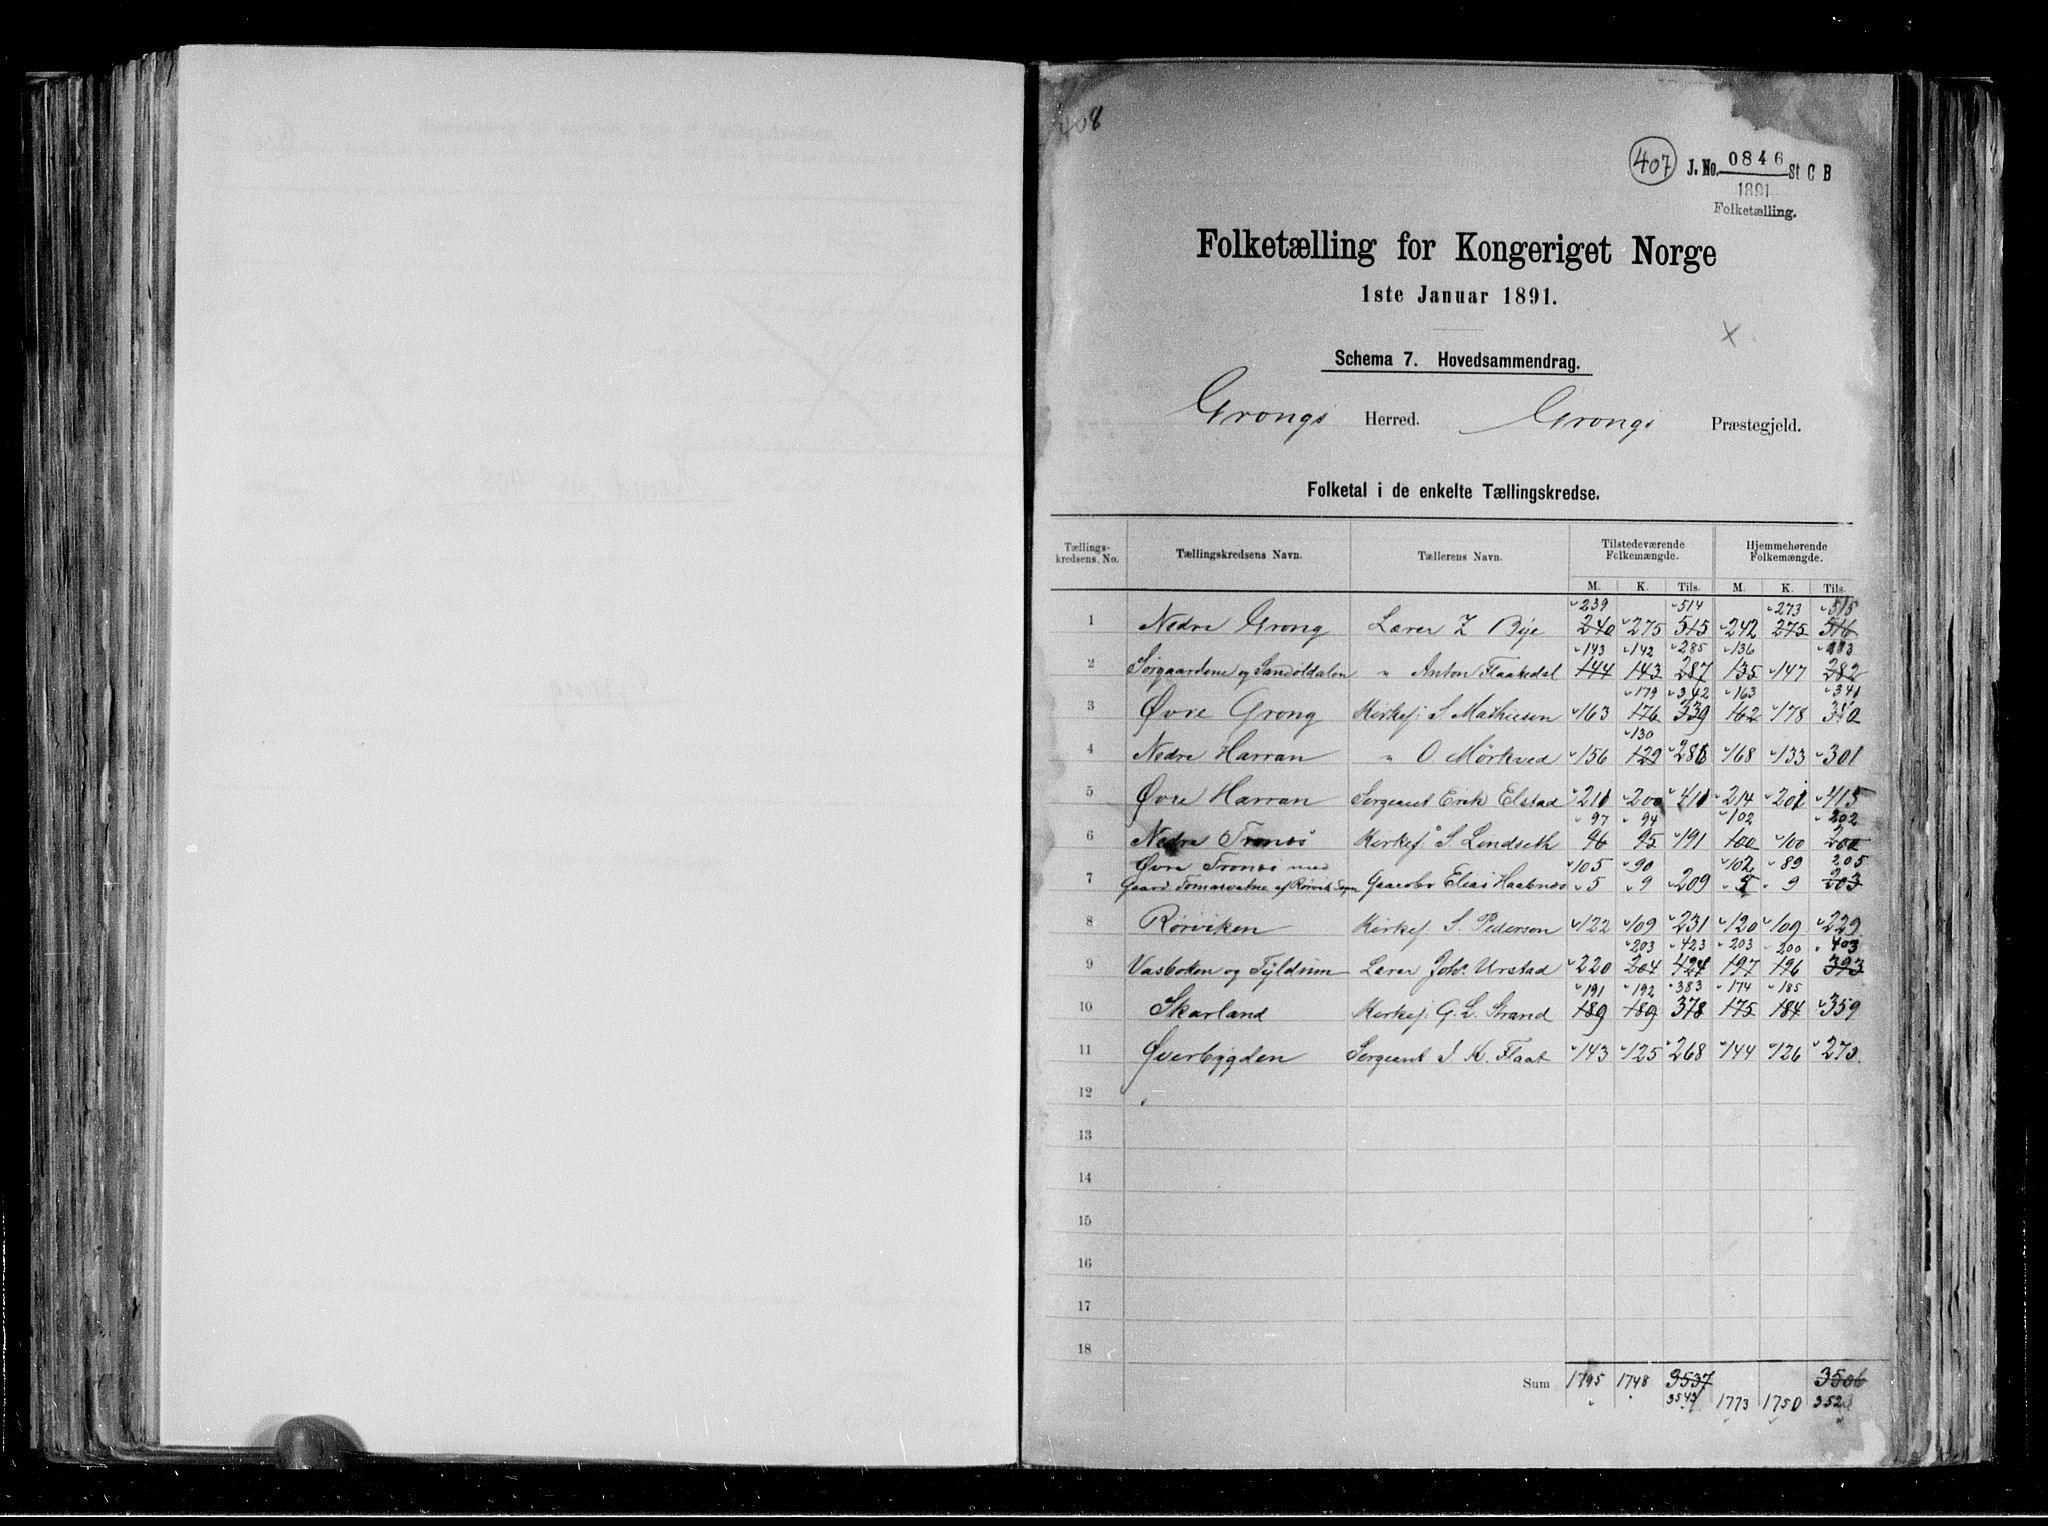 408
407 J. No. 0846 St C B
1891
Folketælling.
Folketælling for Kongeriget Norge
1ste Januar 1891.
Schema 7. Hovedsammendrag.
Grongs Herred. Grongs Præstegjeld.
Folketal i de enkelte Tællingskredse.
Tællings- Tællingskredsens Navn. Tællerens Navn. Tilstedeværende Hjemmehørende
kredsens. No. Folkemængde. Folkemængde.
M. K. Tils. M. K. Tils.
239 514 273 515
1 Nedre Grong Lærer Z Bye 240 275 515 242 275 516
143 142 285 136 283
2 Sørgaardene og Sandöldalen " Anton Flaakedal 144 143 287 135 147 282
179 342 163 341
3 Øvre Grong Kirkesj. S Mathiesen 163 176 339 162 178 340
130
4 Nedre Harran " O Mörkved 156 129 286 168 133 301
5 Øvre Harran Sergeant Erik Elstad 210 200 410 214 201 415
97 94 102 202
6 Nedre Tronæs Kirkesj. S. Lindseth 96 95 191 100 100 200
Øvre Tronæs med 105 90 102 89 205
7 Gaard Tomasvatne af Rørvik Sogn Gaardbr Elias Haabnes 5 9 209 5 9 203
8 Rørviken Kirkesj. S. Pederson 122 109 231 120 109 229
203 423 203 200 403
9 Vasboken og Fyldum Lærer Joh. Urstad 220 204 424 197 196 393
191 192 383 174 185
10 Skarland Kirkesj. G. L. Strand 189 189 378 175 184 359
11 Øverbygden Sergeant I. K. Flaat 143 125 268 144 126 270
12
13
14
15
16
17
18
Sum 1795 1748 3537 3506
3543 1773 1750 3523